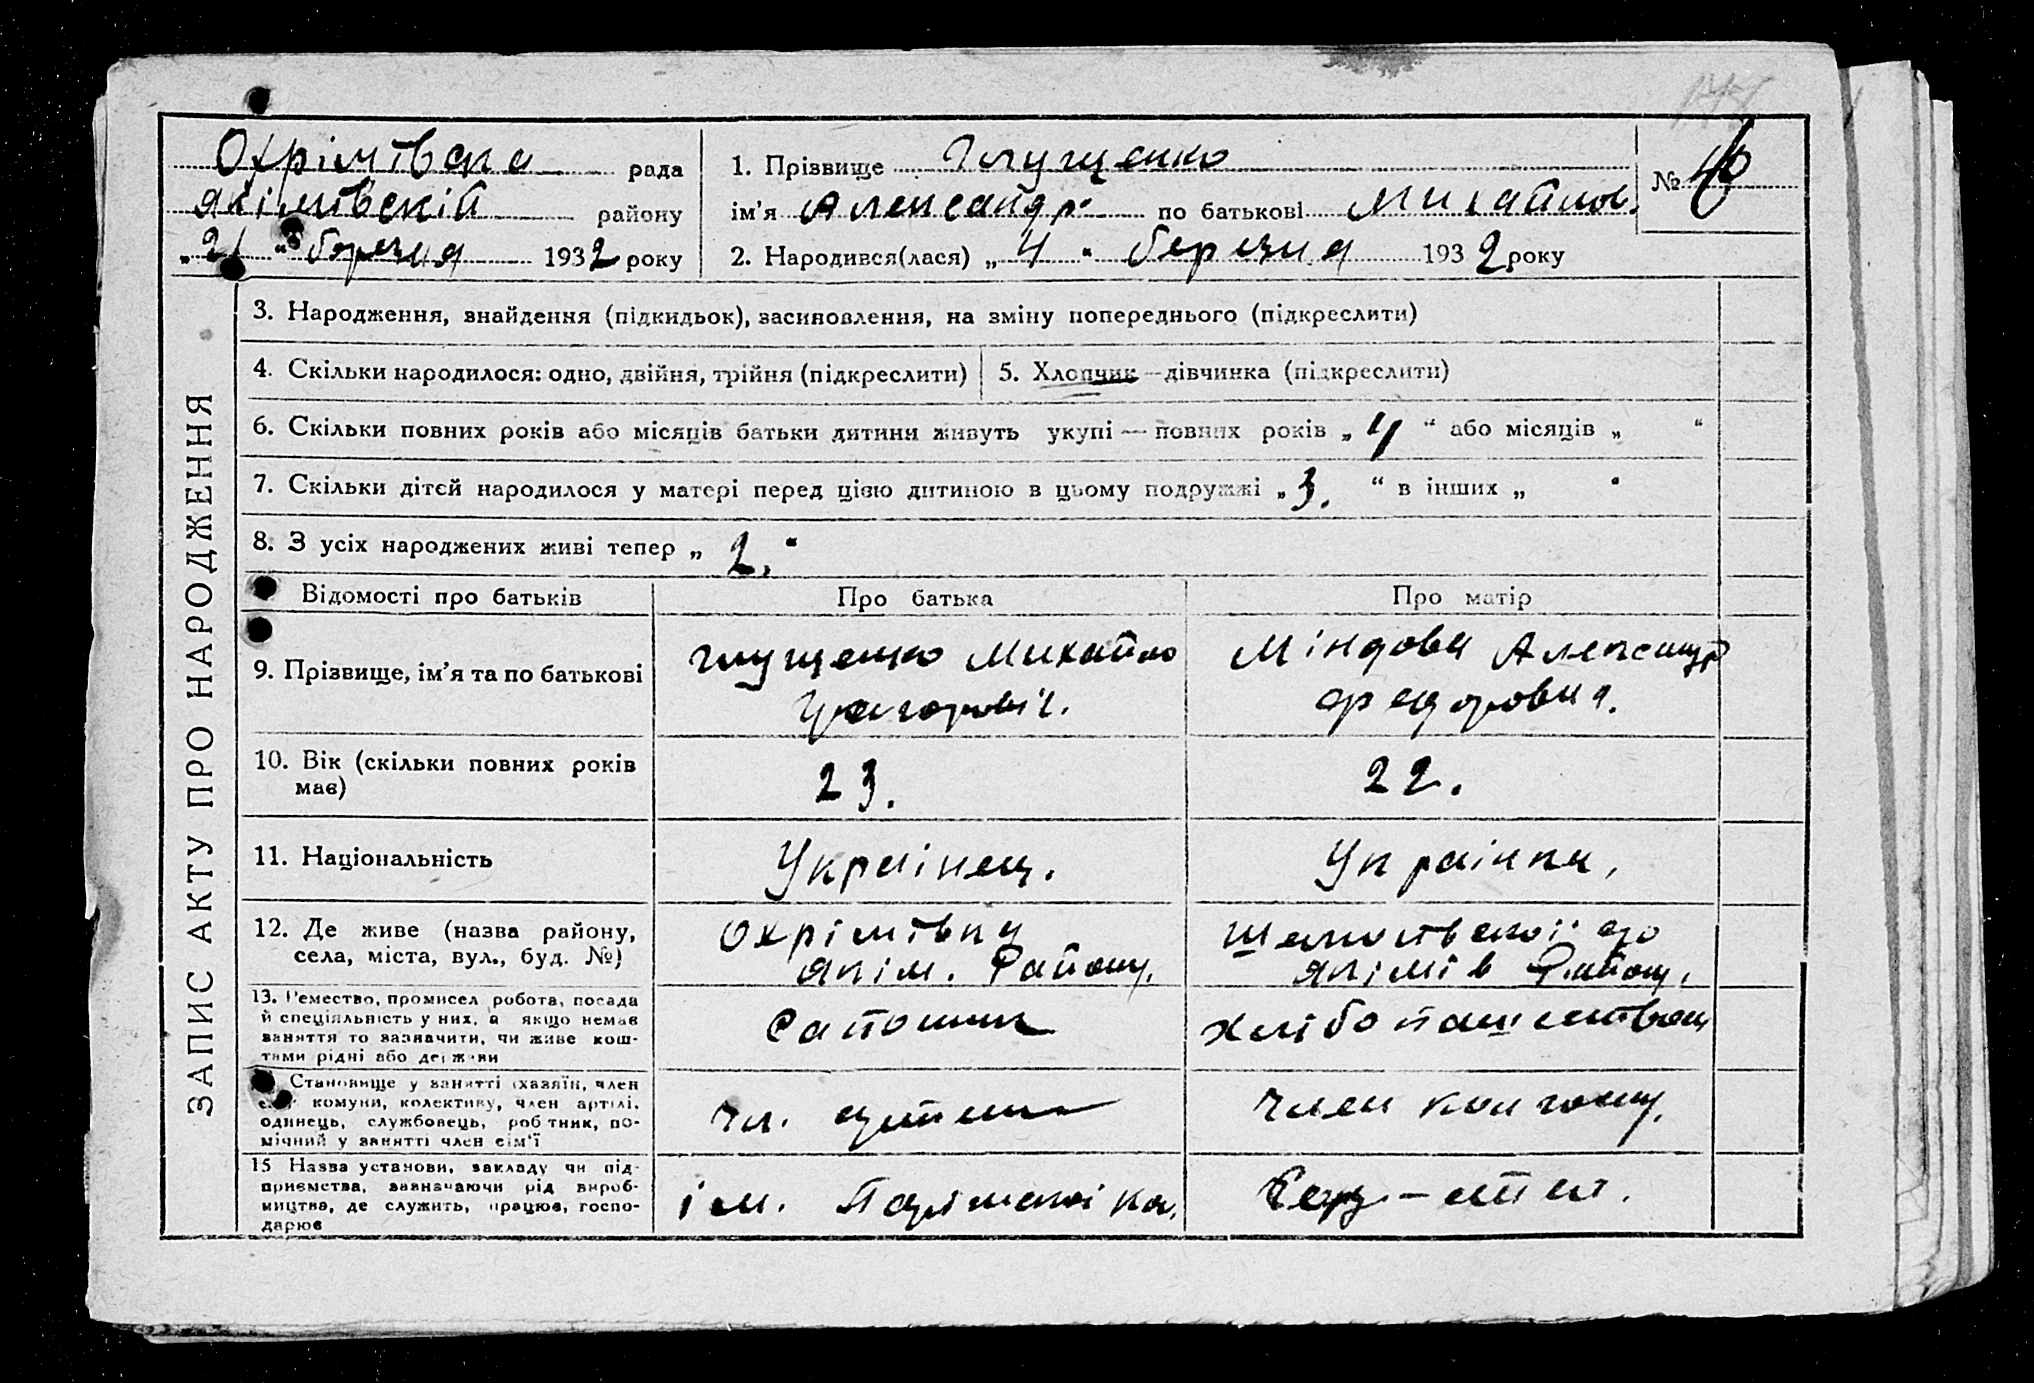 Охрімівска рада
Якімівскій району
„21“ березня 1932 року
1. Прізвище Глущенко
ім'я Александр по батькові Михайлов.
2. Народився(лася) „4“ березня 1932 року
№
ЗАПИС АКТУ ПРО НАРОДЖЕННЯ
3. Народження, знайдення (підкидьок), засиновлення, на зміну попереднього (підкреслити)
4. Скільки народилося: одно, двійня, трійня (підкреслити)
5. Хлопчик—дівчинка (підкреслити)
6. Скільки повних років або місяців батьки дитини живуть укупі — повних років „4“ або місяців „ “
7. Скільки дітей народилося у матері перед цією дитиною в цьому подружжі „3.“ в інших „ “
8. З усіх народжених живі тепер „2.“
Відомості про батьків
Про батька
Про матір
9. Прізвище, ім'я та по батькові
Глущенко Михайло
Григоровіч.
Міндова Александр
Федоровна.
10. Вік (скільки повних років
має)
23.
22.
11. Національність
Украінец.
Украінка,
12. Де живе (назва району,
села, міста, вул., буд. №)
Охрімівка
Якім. Району.
Якімів Району.
13. Ремество, промисел робота, посада
й спеціяльність у них, а якщо немає
заняття то зазначити, чи живе кош-
тами рідні або держави
Сапожник
Хлібопашество
Становище у занятті (хазяїн, член
комуни, колективу, член артілі,
одинець, службовець, робітник, по-
мічний у занятті член сім'ї
Чл. артели
Член колгоспу.
15 Назва установи, закладу чи під-
приємства, зазначаючи рід вироб-
ництва, де служить, працює, госпо-
дарює
ім.